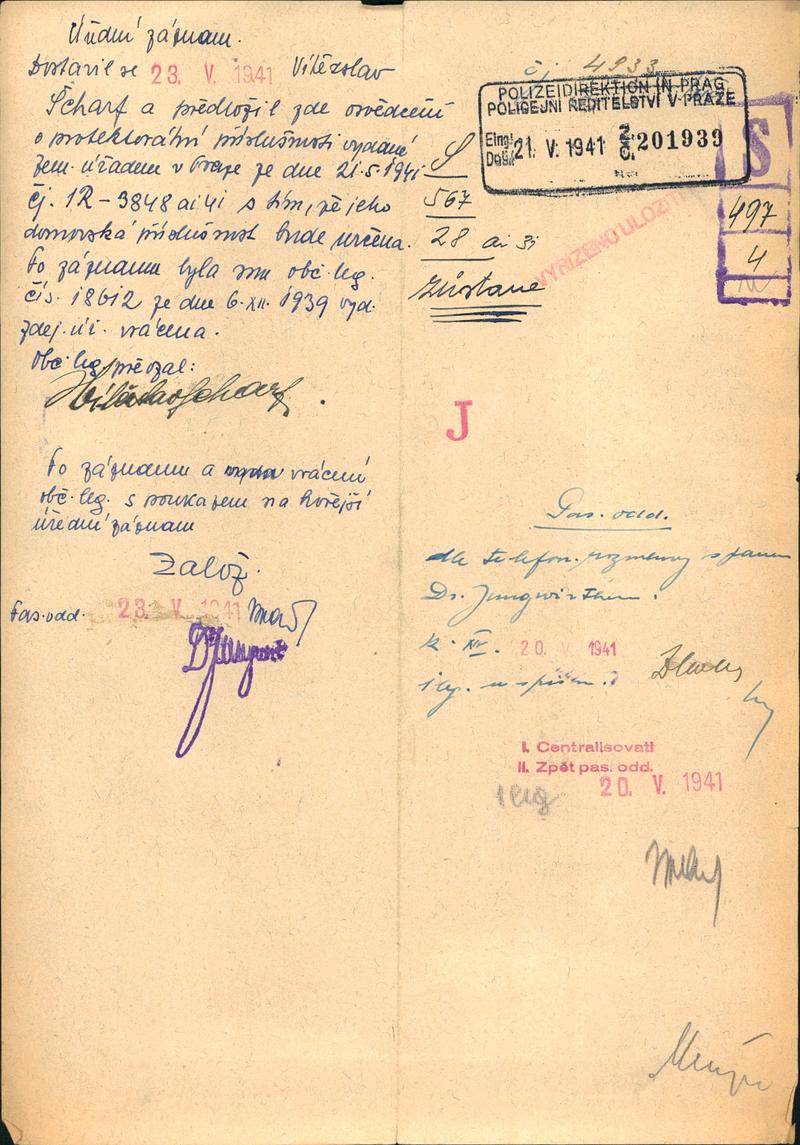 Úřední záznam.
Dostavil se 23. V. 1941 Vítězslav
Scharf a předložil zde osvědčení
o protektorátní příslušnosti vydané
zem. úřadem v Praze ze dne 21.5.1941
čj. 1R-3848 ai 41 s tím, že jeho
domovská příslušnost bude určena.
Po záznamu byla mu obč. leg.
čís. 18612 ze dne 6. XII. 1939 vyd.
zdej. úř. vrácena.
Obč. leg. převzal:
Vítězslav Scharf.
Po záznamu a vrácení
obč. leg. s poukazem na hořejší
úřední záznam
Založ.
Pas. odd. 23. V. 1941
čj. 4933
POLIZEIDIREKTION IN PRAG
POLICEJNÍ ŘEDITELSTVÍ V PRAZE
Eing.
Došlo 21. V. 1941 201939
S
567
28 ai 31
zůstane
VYŘÍZENO ULOŽIT
S
497
4
J
Pas. odd.
dle telefon. rozmluvy s panem
Dr. Jungwirthem.
k. XV. 20. V. 1941
I. Centralisovati
II. Zpět pas. odd.
20. V. 1941
1 leg